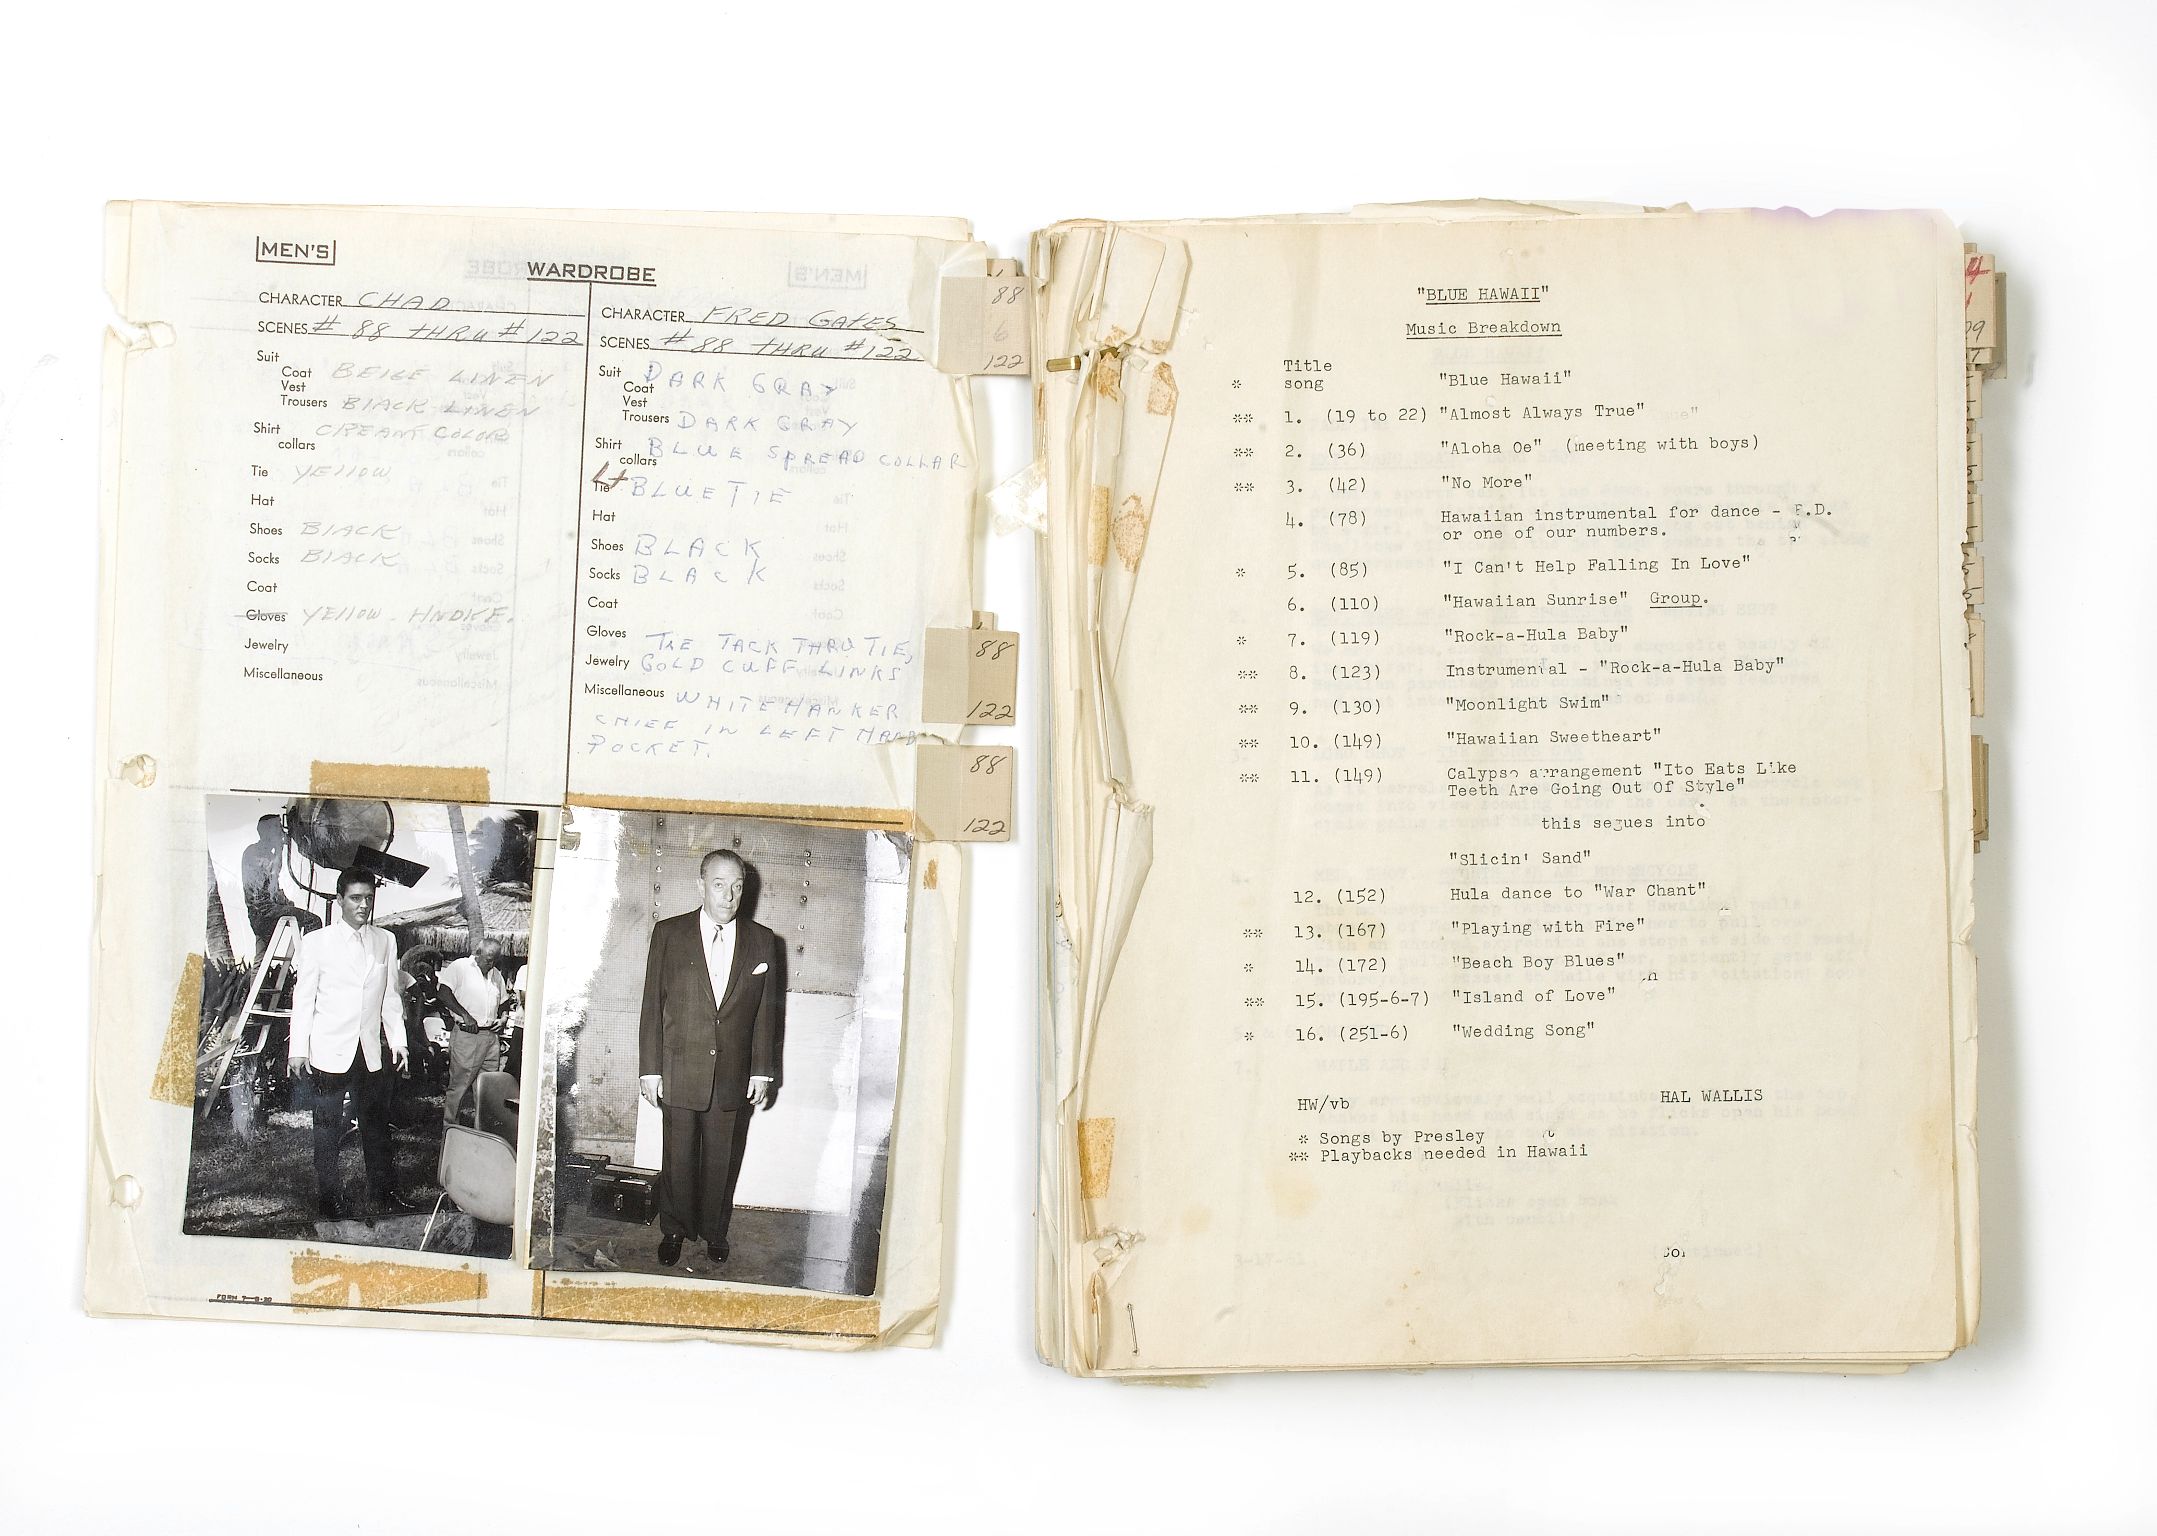 MEN'S
WARDROBE
CHARACTER CHAD
SCENES # 88 THRU # 122
Suit
Coat BEIGE LINEN
Vest
Trousers BLACK LINEN
Shirt CREAM COLOR
collars
Tie YELLOW
Hat
Shoes BLACK
Socks BLACK
Coat
Gloves YELLOW. HNDKF.
Jewelry
Miscellaneous
CHARACTER FRED GATES
SCENES # 88 THRU #122
Suit DARK GRAY
Coat
Vest
Trousers DARK GRAY
Shirt BLUE SPREAD COLLAR
collars
Lt
Tie BLUE TIE
Hat
Shoes BLACK
Socks BLACK
Coat
Gloves TIE TACK THRU TIE,
Jewelry GOLD CUFF LINKS
Miscellaneous WHITE HANKER
CHIEF IN LEFT HAND
POCKET.
88
6
122
88
122
88
122
"BLUE HAWAII"
Music Breakdown
Title
* song "Blue Hawaii"
** 1. (19 to 22) "Almost Always True"
** 2. (36) "Aloha Oe" (meeting with boys)
** 3. (42) "No More"
4. (78) Hawaiian instrumental for dance - P.D.
or one of our numbers.
* 5. (85) "I Can't Help Falling In Love"
6. (110) "Hawaiian Sunrise" Group.
* 7. (119) "Rock-a-Hula Baby"
** 8. (123) Instrumental - "Rock-a-Hula Baby"
** 9. (130) "Moonlight Swim"
** 10. (149) "Hawaiian Sweetheart"
** 11. (149) Calypso arrangement "Ito Eats Like
Teeth Are Going Out Of Style"
this segues into
"Slicin' Sand"
12. (152) Hula dance to "War Chant"
** 13. (167) "Playing with Fire"
* 14. (172) "Beach Boy Blues"
** 15. (195-6-7) "Island of Love"
* 16. (251-6) "Wedding Song"
HW/vb HAL WALLIS
* Songs by Presley
** Playbacks needed in Hawaii